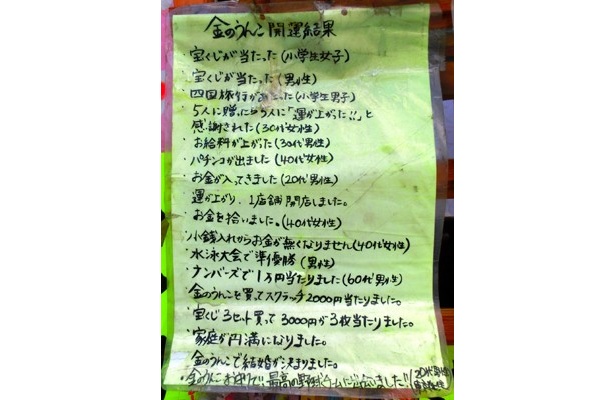 金のうんこ開運結果
・宝くじが当たった(小学生女子)
・宝くじが当たった(男性)
・四国旅行が当たった(小学生男子)
・5人に贈ったら5人に「運が上がった!!」と
感謝された(30代女性)
・お給料が上がった(30代男性)
・パチンコが出ました(40代女性)
・お金が入ってきました(20代男性)
・運が上がり、1店舗開店しました。
・お金を拾いました。(40代女性)
・小銭入れからお金が無くなりません(40代女性)
・水泳大会で準優勝(男性)
・ナンバーズで1万円当たりました(60代男性)
・金のうんこを買てスクラッチ2000円当たりました。
・宝くじ3セット買って3000円が3枚当たりました。
・家庭が円満になりました。
・金のうんこで結婚が決まりました。
・金のうんこお守りで!!最高の野球チームに出会いました!!
20代男性